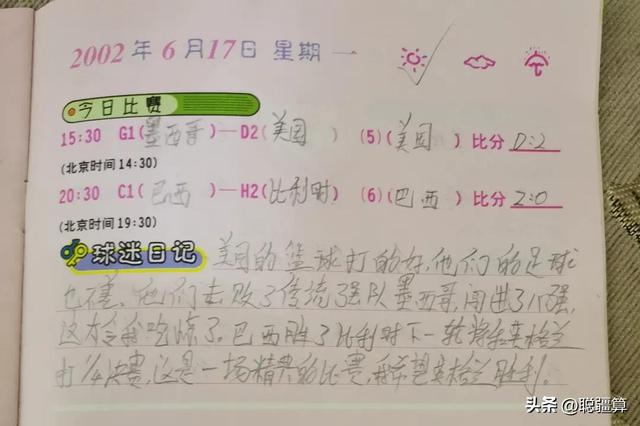 2002年6月17日 星期一
今日比赛
15:30 G1(墨西哥)—D2(美国) (5)(美国) 比分 0:2
(北京时间14:30)
20:30 C1(巴西)—H2(比利时) (6)(巴西) 比分 2:0
(北京时间19:30)
球迷日记 美国的篮球打的好,他们的足球
也不差,他们击败了传统强队墨西哥,闯进了八强,
这才令我吃惊了。巴西胜了比利时下一轮将和英格兰
打1/4决赛,这是一场精典的比赛,我希望英格兰胜利。
头条 @聪疆算